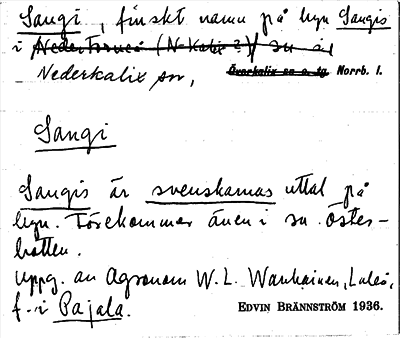 Sangi, finskt namn på byn Sangis
i Neder Torneå (N-Kalix?) sn i
Nederkalix sn, Överkalix sn o. tg. Norrb. l.
Sangi
Sangis är svenskarnas uttal på
byn. Förekommer även i sv. Öster-
botten.
Uppg. av Agronom W. L. Wanhainen, Luleå,
f. i Pajala.
EDVIN BRÄNNSTRÖM 1936.